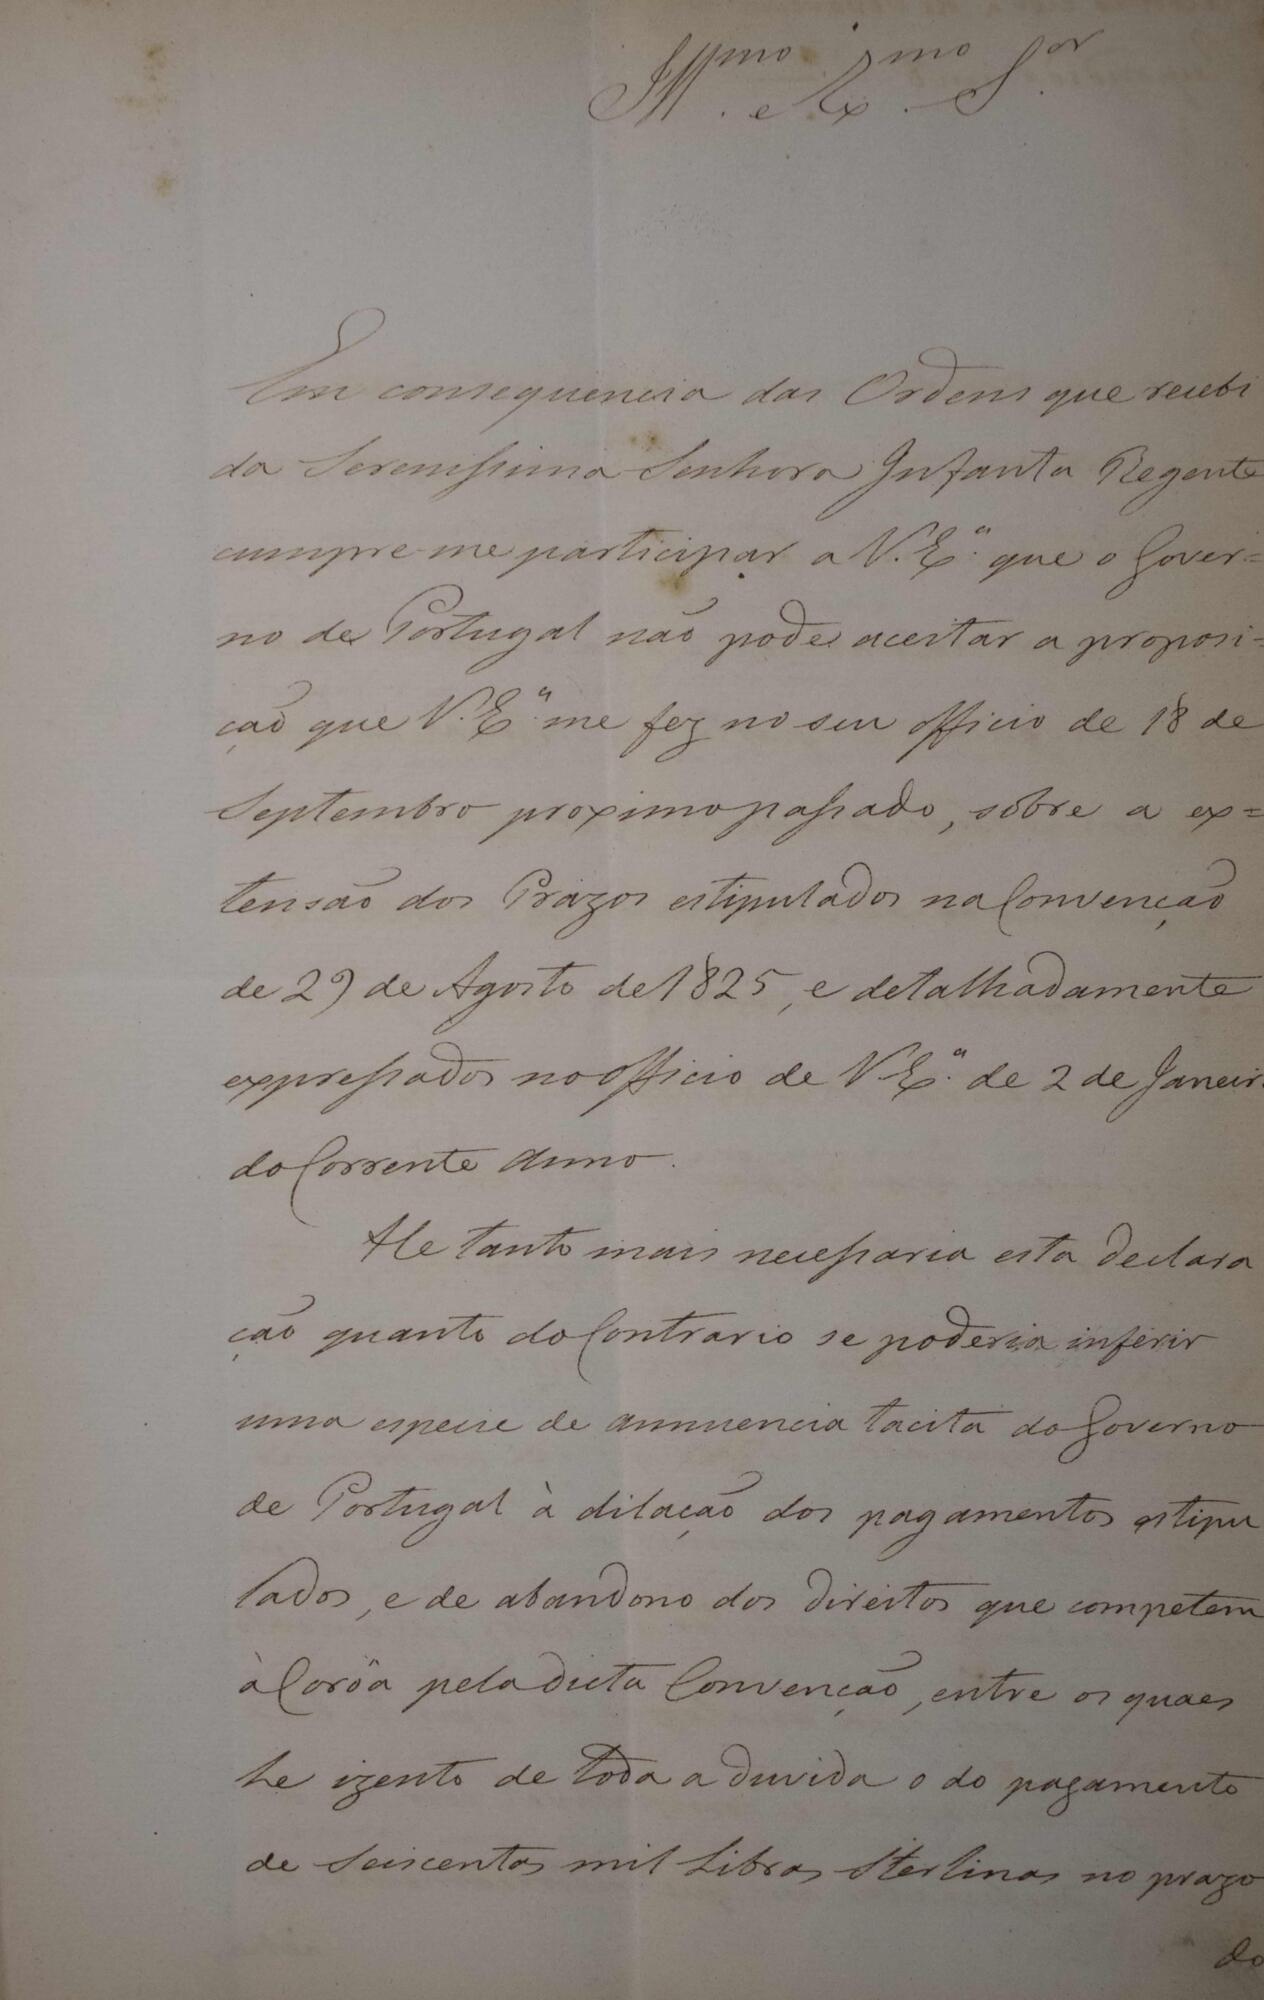 Ill.mo e Ex.mo S.or
Em consequencia das Ordens que recebi
da Serenissima Senhora Infanta Regente
cumpre-me participar a V. Ex.a que o Gover=
no de Portugal não pode aceitar a proposi=
ção que V. Ex.a me fez no seu officio de 18 de
Septembro proximo passado, sôbre a ex=
tensão dos Prazos estipulados na Convenção
de 29 de Agosto de 1825, e detalhadamente
expressados no officio de V. Ex.a de 2 de Janeir
do Corrente Anno.
He tanto mais necessaria esta declara
ção quanto do Contrario se poderia inferir
uma especie de annuencia tacita do Governo
de Portugal à dilação dos pagamentos estipu
lados, e de abandono dos direitos que competem
à Corôa pela dicta Convenção, entre os quaes
he izento de toda a duvida o do pagamento
de Seiscentas mil Libras Sterlinas no prazo
do